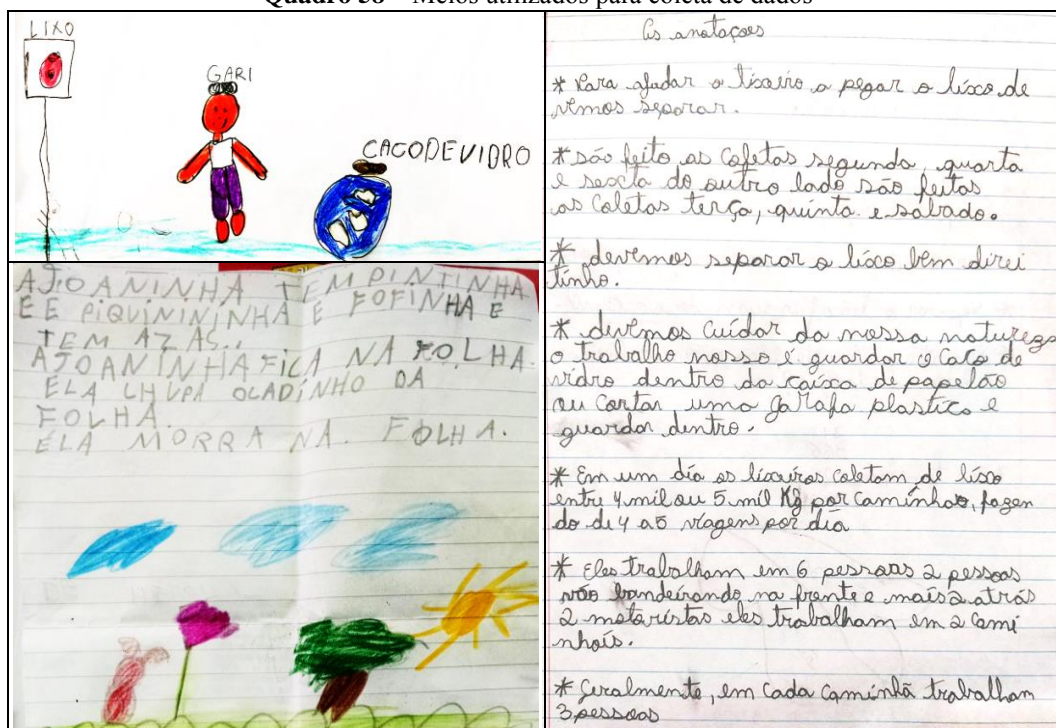 Quadro 58 – Meios utilizados para coleta de dados
LIXO
GARI
CACODEVIDRO
AJOANINHA TEM PINTINHA
E É PIQUININHA E FOFINHA E
TEM AZAS..
AJOANINHA FICA NA FOLHA.
ELA CHUPA OLADINHO DA
FOLHA.
ELA MORRA NA. FOLHA.
As anotaçoes
* Para ajudar o lixeiro a pegar o lixo de
vemos separar.
* são feito as Coletas segunda, quarta
e sexta do outro lado são feitas
as Coletas terça, quinta e sabado.
* devemos separar o lixo bem direi
tinho.
* devemos cuidar da nossa natureza
o trabalho nosso é guardar o caco de
vidro dentro da caixa de papelão
ou cortar uma garafa plastico e
guardar dentro.
* Em um dia os lixeiros coletam de lixo
entre 4 mil ou 5 mil Kg por caminhao, fazen
do de 4 a 5 viagens por dia
* Eles trabalham em 6 pessoas 2 pessoas
vão bandeirando na frente e mais 2 atrás
2 motoristas eles trabalham em 2 cami
nhois.
* Geralmente, em cada caminhã trabalham
3 pessoas